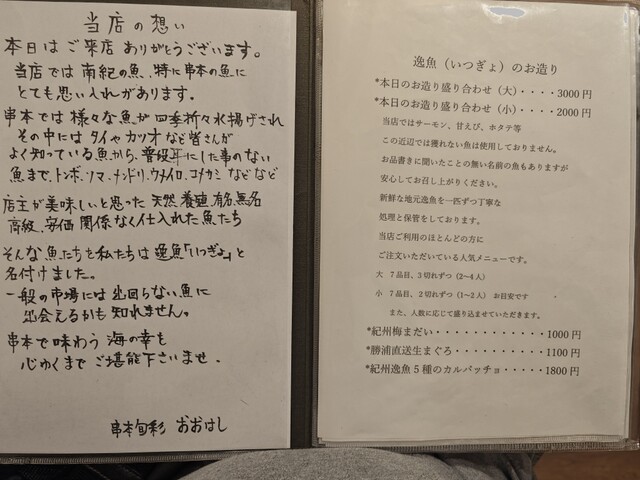 当店の想い
本日はご来店ありがとうございます。
当店では南紀の魚、特に串本の魚に
とても思い入れがあります。
串本では様々な魚が四季折々水揚げされ
その中にはタイやカツオなど皆さんが
よく知っている魚から、普段耳にした事のない
魚まで、トンボ、ソマ、ナンドリ、ウメイロ、コメカミなどなど
店主が美味しいと思った天然、養殖、有名、無名
高級、安価関係なく仕入れた魚たち
そんな魚たちを私たちは逸魚「いつぎょ」と
名付けました。
一般の市場には出回らない魚に
出会えるかも知れません。
串本で味わう海の幸を
心ゆくまでご堪能下さいませ.
串本旬彩 おおはし
逸魚（いつぎょ）のお造り
*本日のお造り盛り合わせ（大）・・・・3000円
*本日のお造り盛り合わせ（小）・・・・2000円
当店ではサーモン、甘えび、ホタテ等
この近辺では獲れない魚は使用しておりません。
お品書きに聞いたことの無い名前の魚もありますが
安心してお召し上がりください。
新鮮な地元逸魚を一匹ずつ丁寧な
処理と保管をしております。
当店ご利用のほとんどの方に
ご注文いただいている人気メニューです。
大 7品目、3切れずつ（2〜4人）
小 7品目、2切れずつ（1〜2人） お目安です
また、人数に応じて盛り込ませていただきます。
*紀州梅まだい・・・・・・・・・・・・1000円
*勝浦直送生まぐろ・・・・・・・・・・1100円
*紀州逸魚5種のカルパッチョ・・・・・1800円